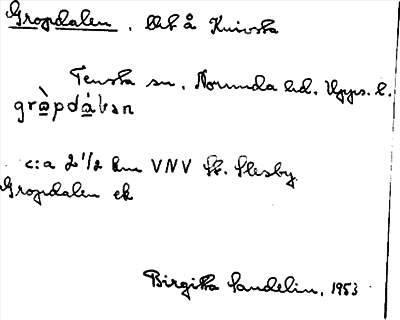 Gropdalen, Utå Knivsta
Tensta sn. Norunda hd. Upps. l.
gràpdáɩ̯an
c:a 2 1/2 km VNV
Gropdalen ek
Birgitta Sandelin, 1953